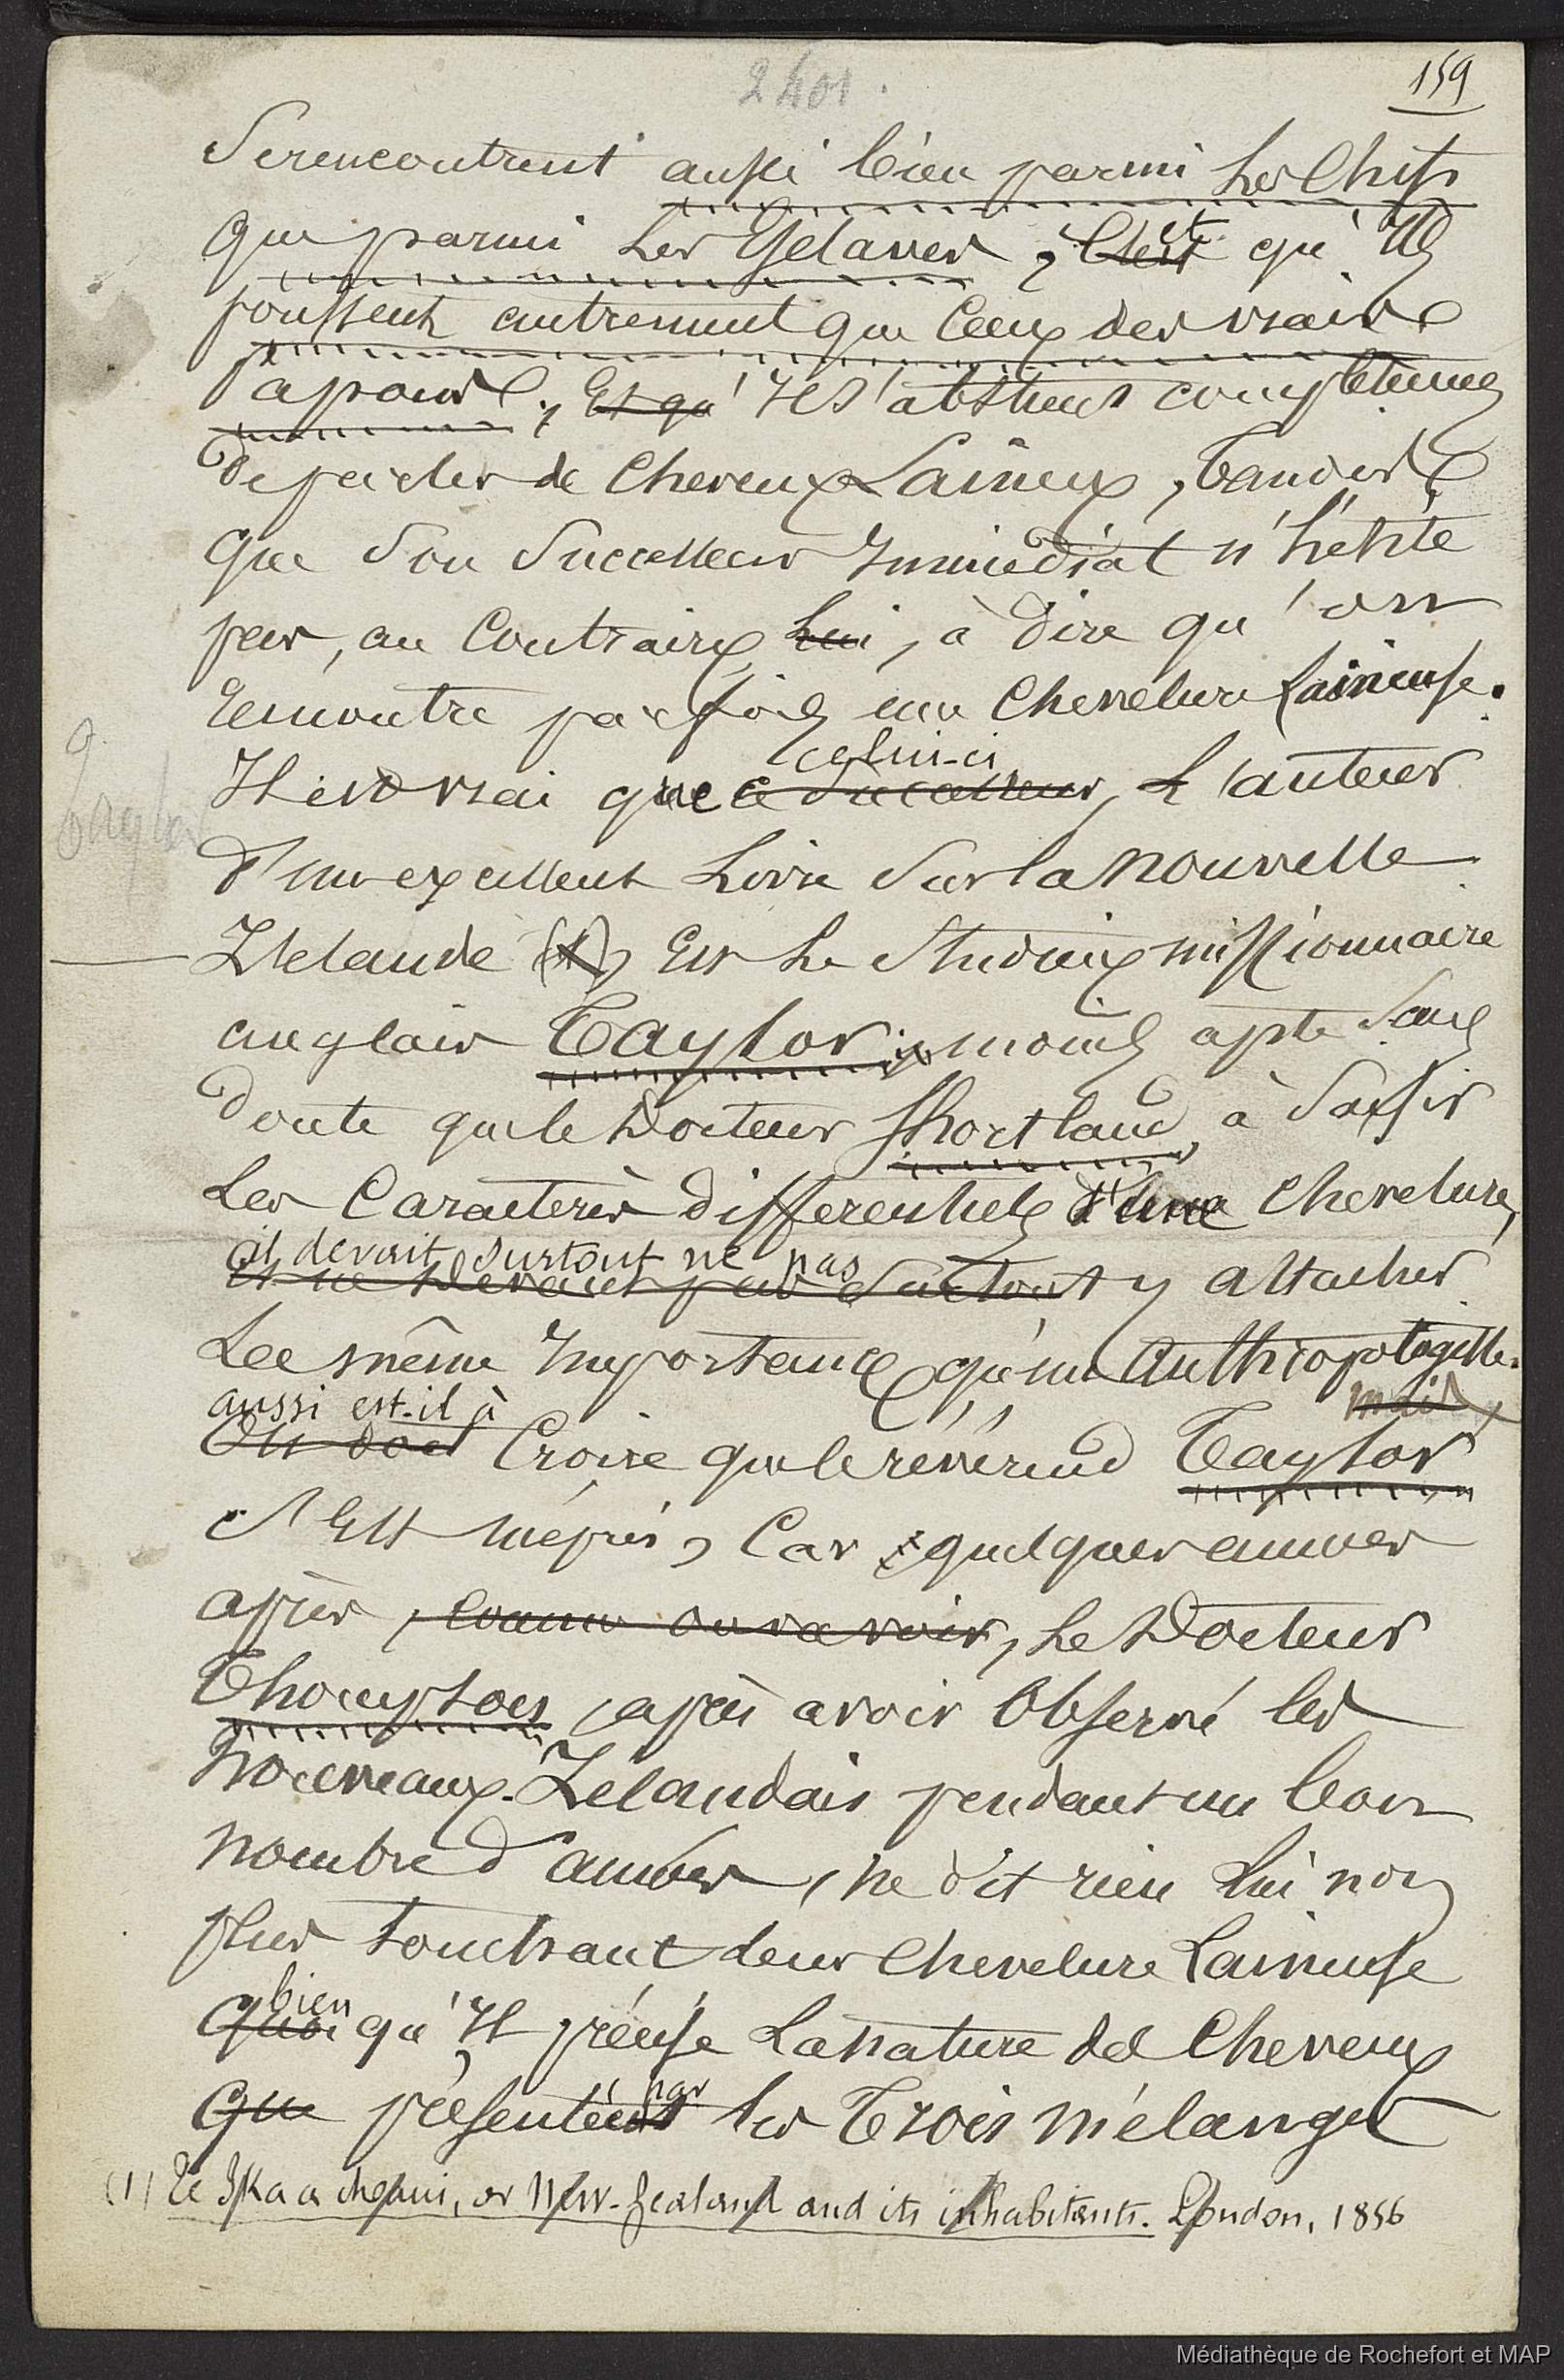 2401.
159
Se rencontrent aussi bien parmi Les Chefs
que parmi Les Esclaves, C'est et qu'Ils
poussent autrement que Ceux des vrais
Papous, Et qu' Il s'abstient complètement
de parler de Cheveux Laineux, Tandis
que Son Successeur Immédiat n'hésite
pas, au Contraire, lui, à dire qu'on
Rencontre parfois une Chevelure Laineuse.
celui-ci
Il est vrai que ce Successeur, L'auteur
Taylor
d'un excellent Livre Sur la nouvelle
Zélande (1), Est Le Studieux missionnaire
anglais Taylor, moins apte Sans
doute que le Docteur Shortland, à Saisir
Les Caractères differentiels d'une Chevelure,
il devait surtout ne pas
Et ne devant pas Surtout y attacher
La même Importance qu'un Anthropologiste.
mais
aussi est-il à
On doit Croire que le révérend Taylor
s'Est mépris, Car quelques années
après, comme on va voir, Le Docteur
Thompson, après avoir Observé les
Nouveaux-Zélandais pendant un bon
nombre d'années, ne dit rien Lui non
plus touchant leur Chevelure Laineuse
bien
Quoi qu'Il précise La nature des Cheveux
par
Que présentés les Trois mélanges
(1) Te Ika a Maui, or New-Zealand and its inhabitants. London, 1856
Médiathèque de Rochefort et MAP